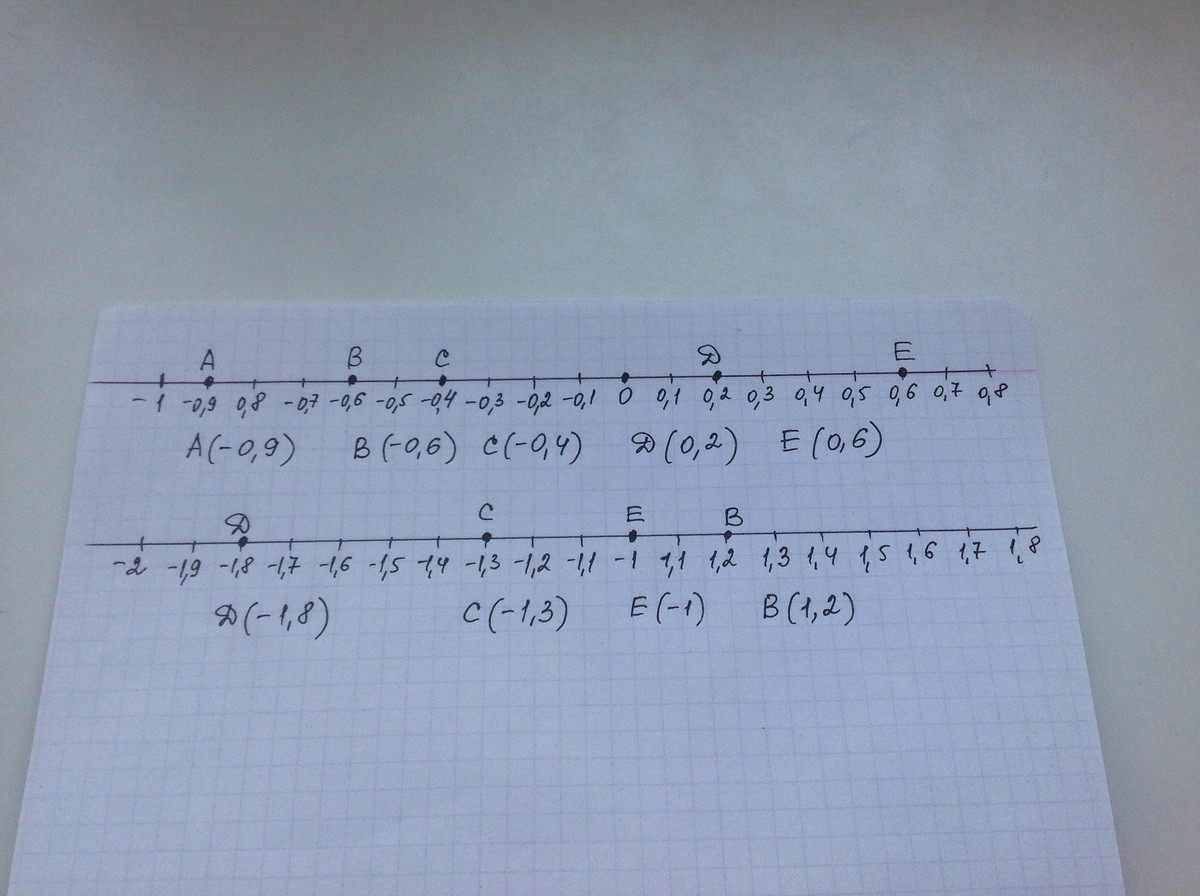 A B C D E
-1 -0,9 0,8 -0,7 -0,6 -0,5 -0,4 -0,3 -0,2 -0,1 0 0,1 0,2 0,3 0,4 0,5 0,6 0,7 0,8
A(-0,9) B(-0,6) C(-0,4) D(0,2) E(0,6)
D C E B
-2 -1,9 -1,8 -1,7 -1,6 -1,5 -1,4 -1,3 -1,2 -1,1 -1 1,1 1,2 1,3 1,4 1,5 1,6 1,7 1,8
D(-1,8) C(-1,3) E(-1) B(1,2)